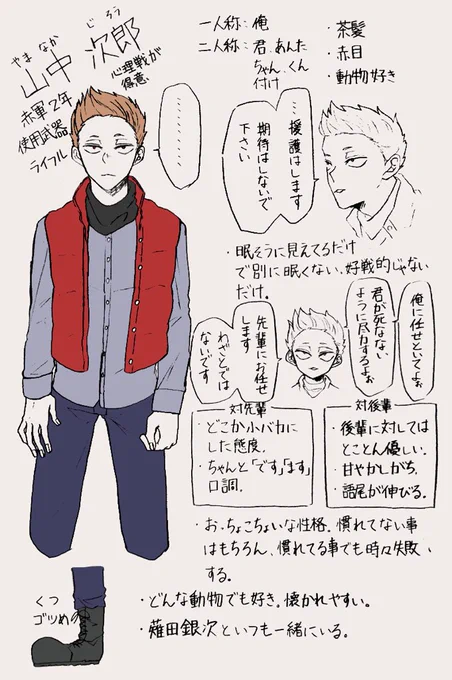 やまなか じろう
山中 次郎
心理戦が
得意
赤軍2年
使用武器
ライフル
一人称：俺
二人称：君、あんた
ちゃん、くん
付け
・茶髪
・赤目
・動物好き
………
…援護はします
期待はしないで
下さい
・眠そうに見えてるだけ
で別に眠くない、好戦的じゃない
だけ。
俺に任せといてよぉ
君が死なない
ように尽力するよぉ
先輩にお任せ
します
ねごとでは
ないです
対先輩
・どこか小バカに
した態度。
・ちゃんと「です」「ます」
口調。
対後輩
・後輩に対しては
とことん優しい。
・甘やかしがち。
・語尾が伸びる。
・おっちょこちょいな性格。慣れてない事
はもちろん、慣れてる事でも時々失敗
する。
・どんな動物でも好き。懐かれやすい。
・薙田銀次といつも一緒にいる。
くつ
ゴツめの